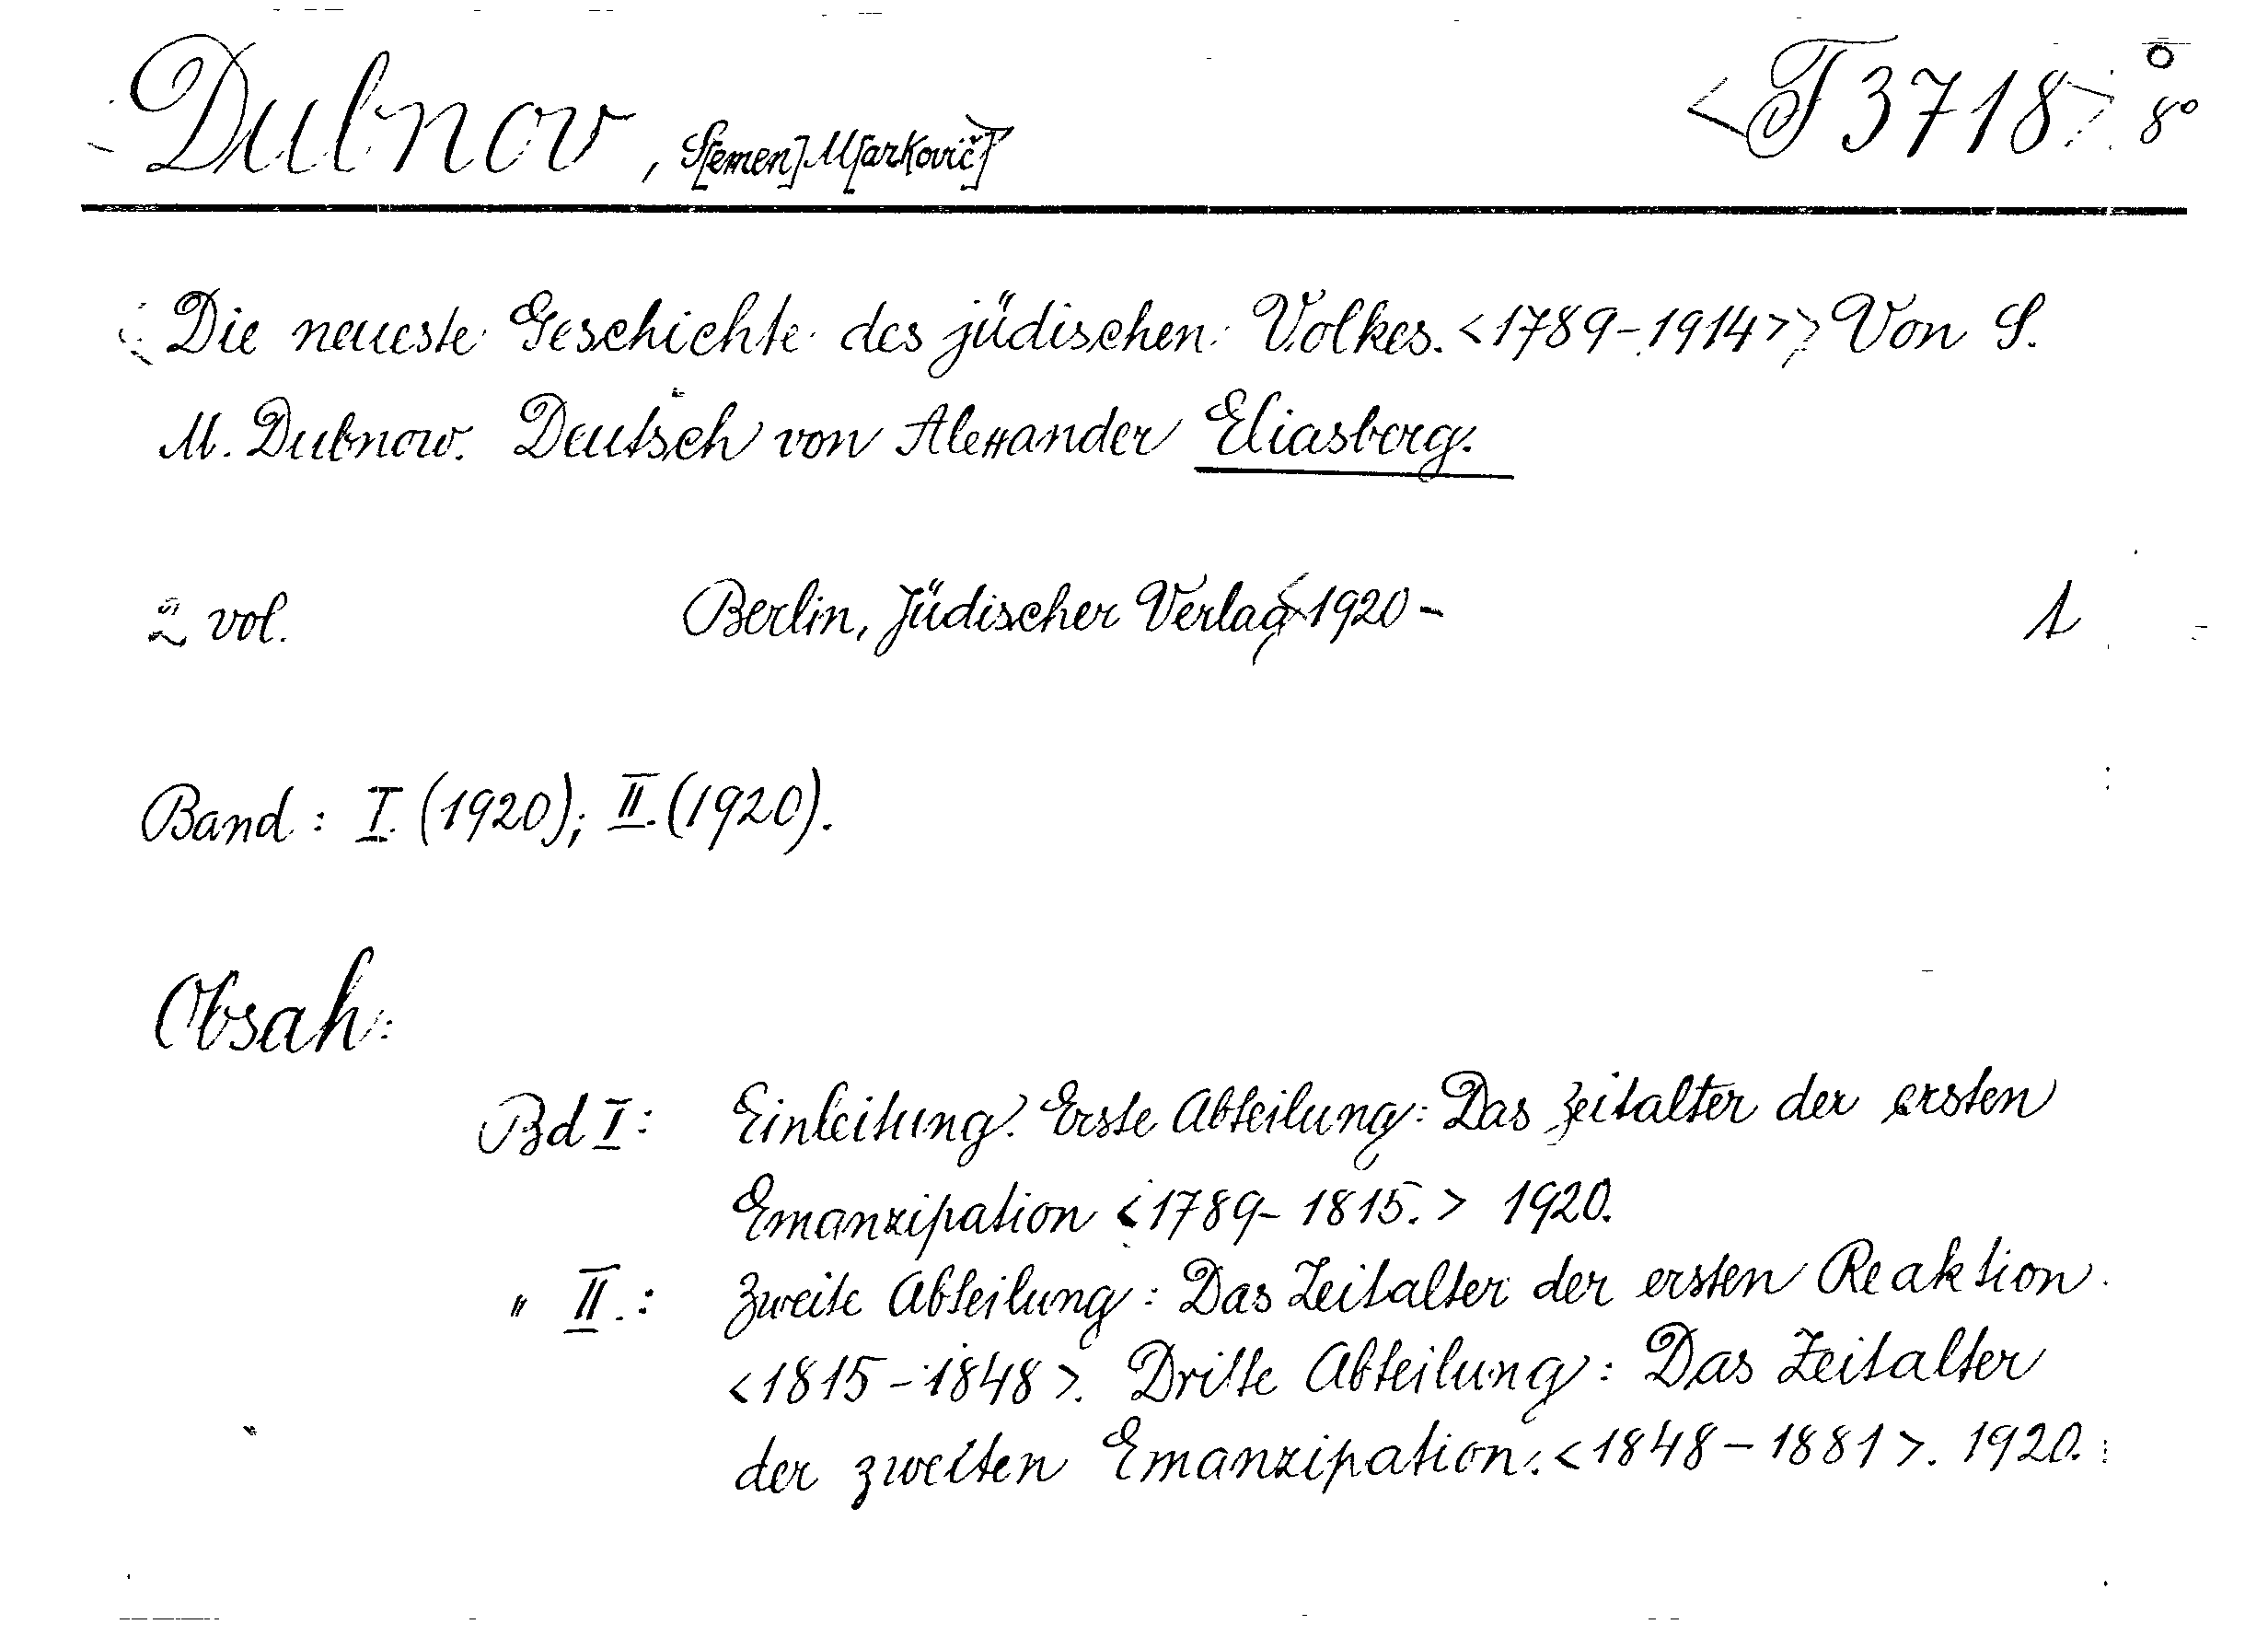 Dubnov, S[emen] M[arkovič] <T 3718> 8°
Die neueste Geschichte des jüdischen Volkes. <1789-1914> Von S.
M. Dubnow. Deutsch von Alexander Eliasberg.
2 vol. Berlin, Jüdischer Verlag 1920 - 1
Band: I. (1920); II. (1920).
Obsah:
Bd I: Einleitung. Erste Abteilung: Das Zeitalter der ersten
Emanzipation <1789-1815.> 1920.
" II.: Zweite Abteilung: Das Zeitalter der ersten Reaktion.
<1815-1848>. Dritte Abteilung: Das Zeitalter
der zweiten Emanzipation. <1848-1881>. 1920.